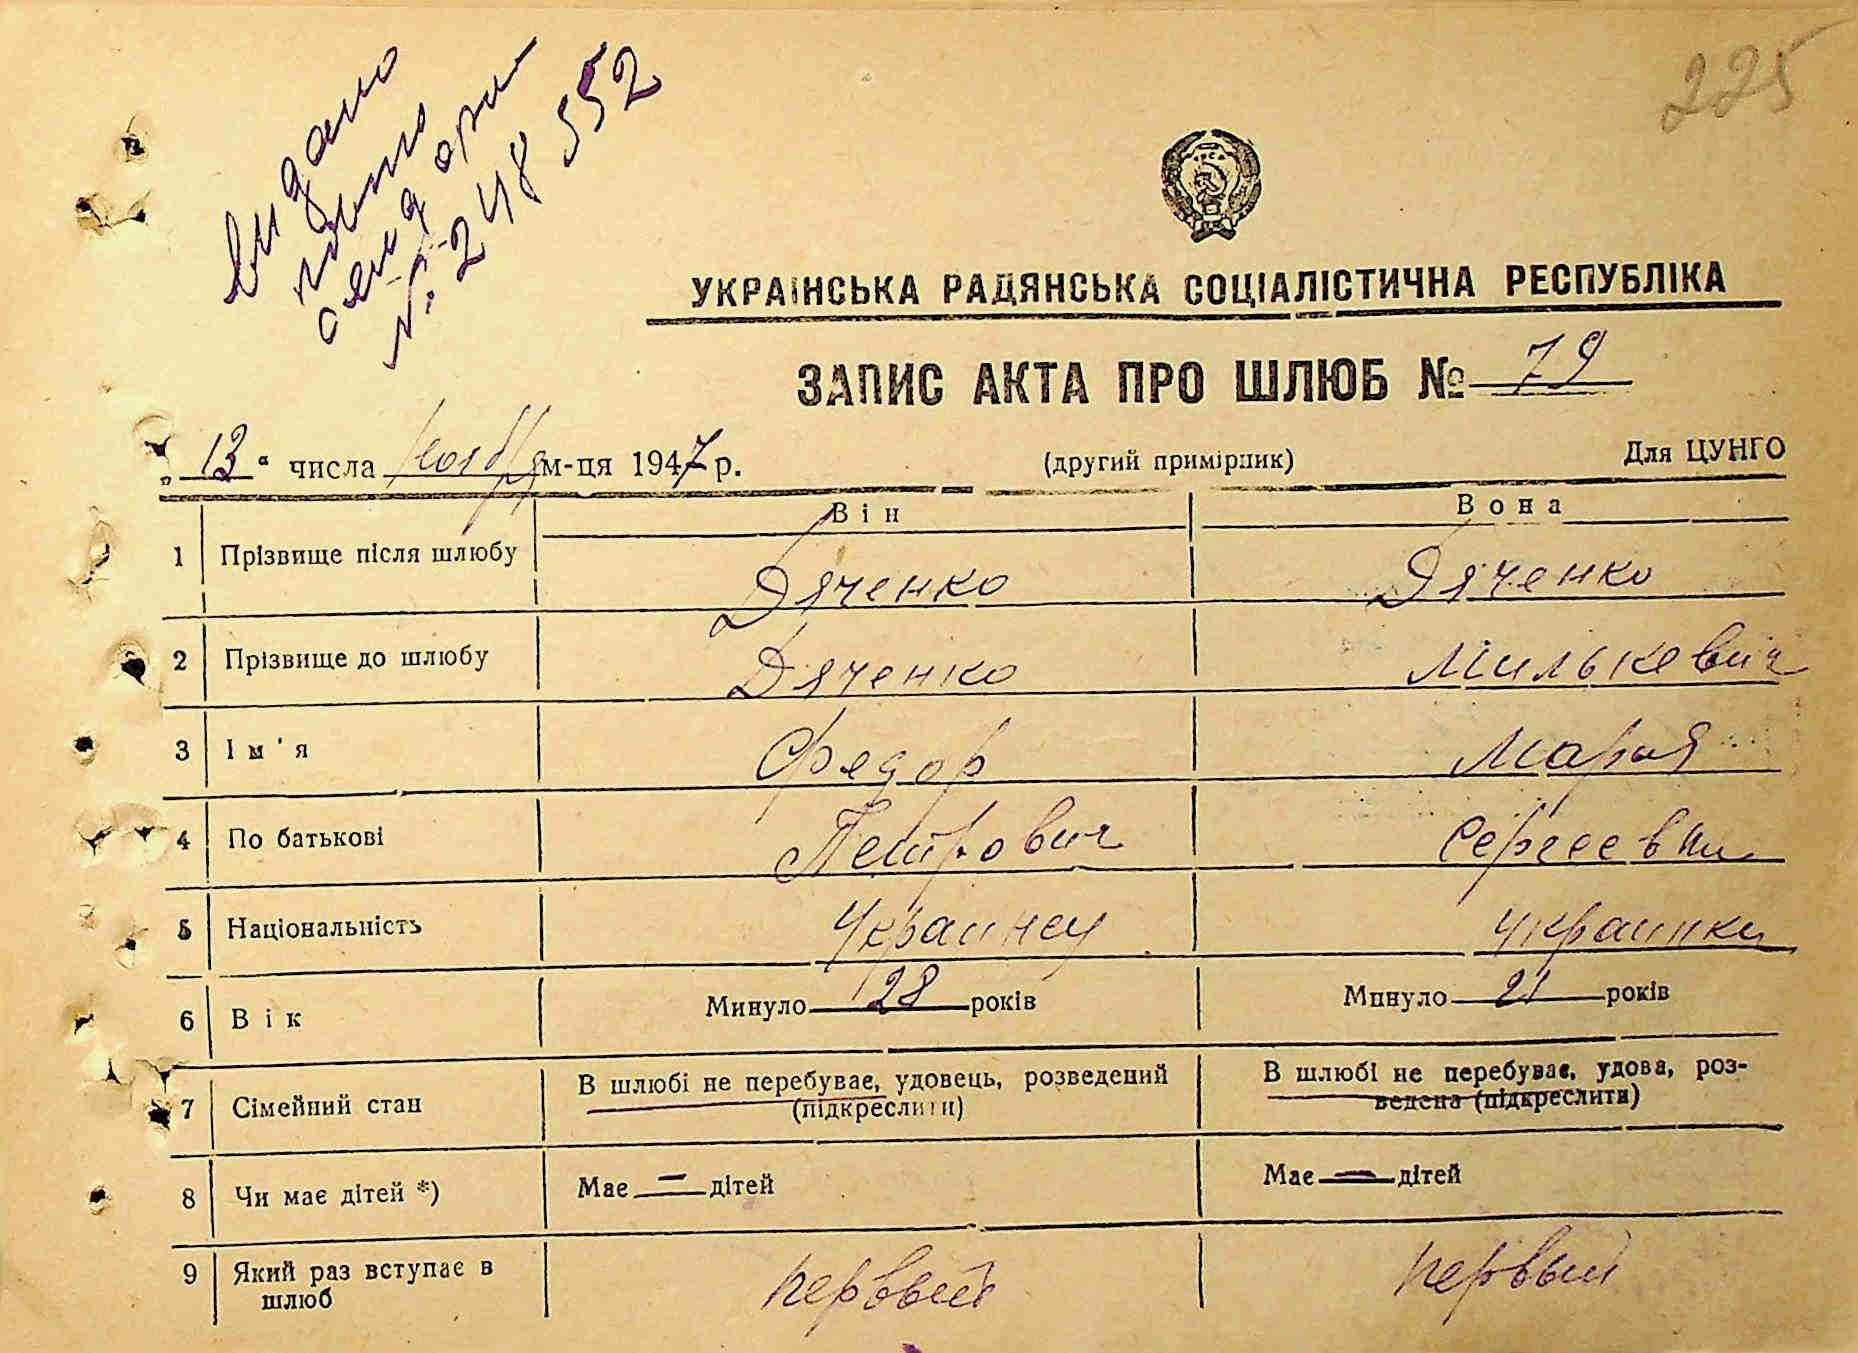 225
видано
свид
№ 248552
УКРАЇНСЬКА РАДЯНСЬКА СОЦІАЛІСТИЧНА РЕСПУБЛІКА
ЗАПИС АКТА ПРО ШЛЮБ № 79
„ 13 “ числа Ноября м-ця 1947 р. (другий примірник) Для ЦУНГО
Він Вона
1 Прізвище після шлюбу Дяченко Дяченко
2 Прізвище до шлюбу Дяченко Милькевич
3 Ім'я Федор Мария
4 По батькові Петрович Сергеевна
5 Національність Украинец украинка
6 Вік Минуло 28 років Минуло 21 років
7 Сімейний стан В шлюбі не перебуває, удовець, розведений В шлюбі не перебуває, удова, роз-
(підкреслити) ведена (підкреслити)
8 Чи має дітей *) Має — дітей Має — дітей
9 Який раз вступає в первый первый
шлюб